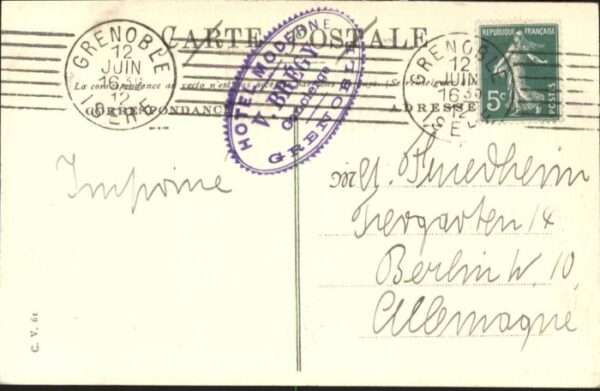 CARTE POSTALE
GRENOBLE
12
JUIN
16 30
12
ISERE
HOTEL MODERNE
V. BRÉGY
Concierge
GRENOBLE
GRENOBLE
12
JUIN
16 30
12
ISERE
REPUBLIQUE FRANÇAISE
5c
POSTES
La correspondance au recto n'est pas
CORRESPONDANCE
ADRESSE
Imprime
Friedheim
Tiergarten 14
Berlin W. 10.
Allemagne
C. V. 61